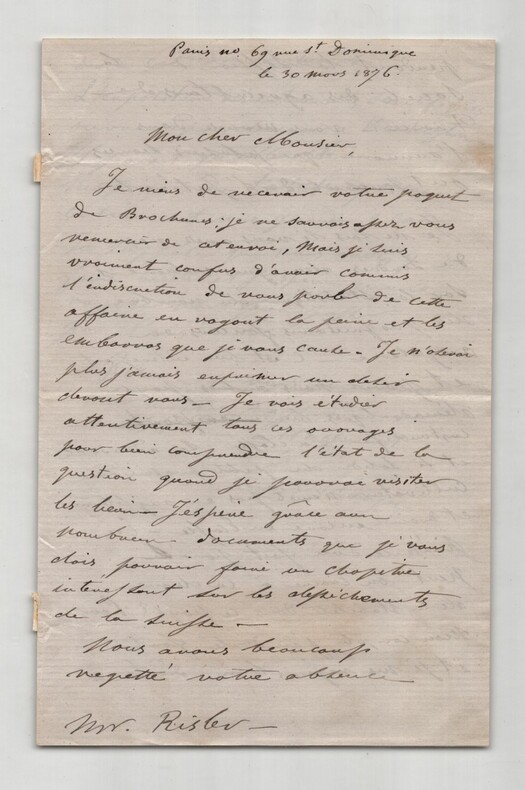 Paris no. 69 rue St Dominique
le 30 mars 1876.
Mon cher Monsieur,
Je viens de recevoir votre paquet
de Brochures; je ne saurais assez vous
remercier de cet envoi, mais je suis
vraiment confus d'avoir commis
l'indiscretion de vous parler de cette
affaire en voyant la peine et les
embarras que je vous cause. Je n'oserai
plus jamais exprimer un desir
devant vous — Je vais étudier
attentivement tous ces ouvrages
pour bien comprendre l'état de la
question quand je pourrai visiter
les lieux — J'éspère grâce aux
nombreux documents que je vous
dois pouvoir faire un chapitre
interessant sur les dessèchements
de la Suisse —
Nous avons beaucoup
regretté votre absence
Mr. Risler —